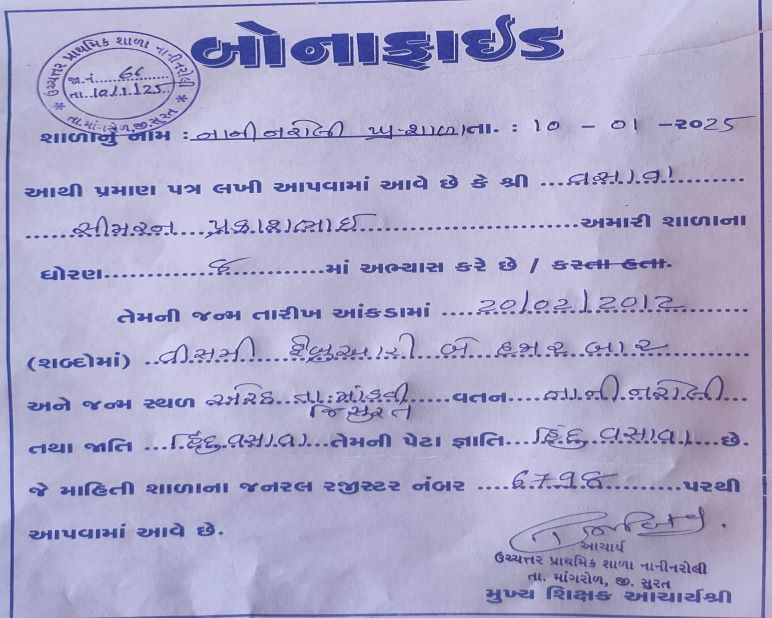 બોનાફાઇડ
ઉચ્ચત્તર પ્રાથમિક શાળા નાનીનરોલી
જા.નં. 66
તા. 10/1/25
* તા.માંગરોળ,જી.સુરત *
શાળાનું નામ : નાનીનરોલી પ્રા.શાળા તા. : 10 - 01 - 2025
આથી પ્રમાણ પત્ર લખી આપવામાં આવે છે કે શ્રી ...વસાવા
સીમરન પ્રકાશભાઈ અમારી શાળાના
ધોરણ 8 માં અભ્યાસ કરે છે / કરતા હતા.
તેમની જન્મ તારીખ આંકડામાં 20/02/2012
(શબ્દોમાં) વીસમી ફેબ્રુઆરી બે હજાર બાર
અને જન્મ સ્થળ તા.માંડવી વતન નાનીનરોલી
જિ.સુરત
તથા જાતિ હિંદુ વસાવા તેમની પેટા જ્ઞાતિ હિંદુ વસાવા છે.
જે માહિતી શાળાના જનરલ રજીસ્ટર નંબર પરથી
આપવામાં આવે છે.
આચાર્ય
ઉચ્ચત્તર પ્રાથમિક શાળા નાનીનરોલી
તા. માંગરોળ, જી. સુરત
મુખ્ય શિક્ષક આચાર્યશ્રી